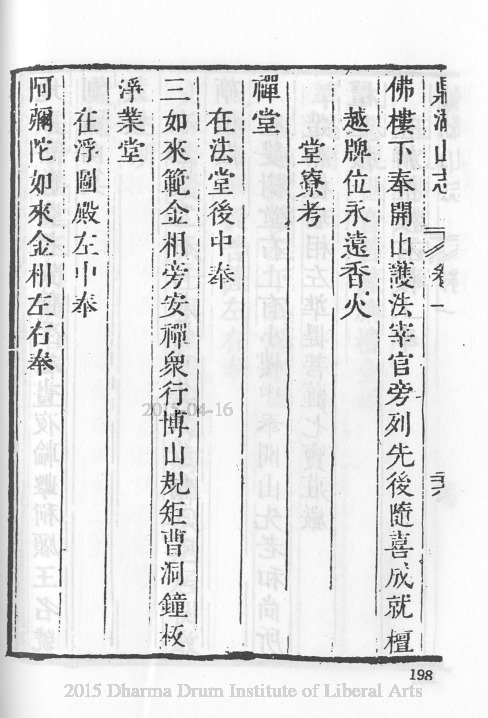 鼎湖山志 卷一 廿六
佛樓下奉開山護法宰官旁列先後隨喜成就檀
越牌位永遠香火
堂寮考
禪堂
在法堂後中奉
三如來範金相旁安禪衆行博山規矩曹洞鐘板
淨業堂
在浮圖殿左中奉
阿彌陀如來金相左右奉
198
2015 Dharma Drum Institute of Liberal Arts